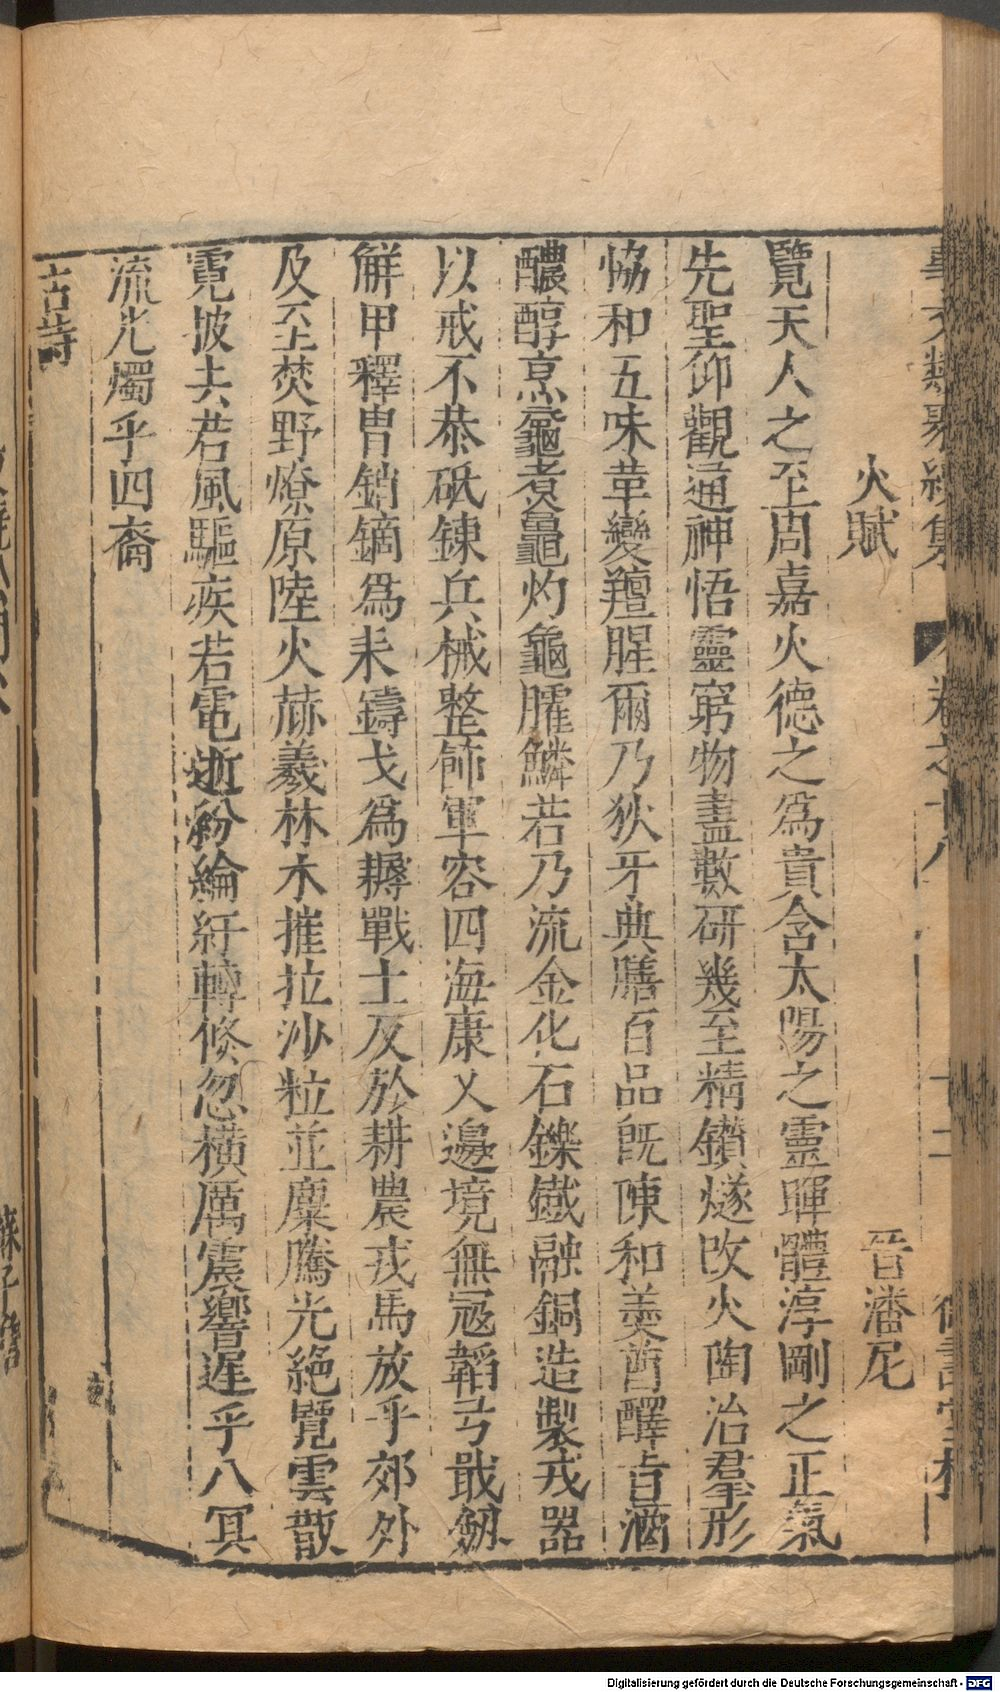 事文類聚續集 卷之十八
火賦 晉潘尼
覽天人之至周嘉火德之為貴含太陽之靈暉體淳剛之正氣
先聖仰觀通神悟靈窮物盡數研幾至精鑽燧改火陶冶羣形
恊和五味革變羶腥爾乃狄牙典膳百品旣陳和羮酋醳旨酒
醲醇烹龜煮黿灼龜臛鱗若乃流金化石鑠鐵融銅造製戎器
以戒不恭砥鍊兵械整飾軍容四海康乂邊境無冦韜弓戢劒
觧甲釋冑銷鏑爲耒鑄戈爲耨戰士反於耕農戎馬放乎郊外
及至焚野燎原陸火赫羲林木摧拉沙粒並糜騰光絶覽雲散
霓披去若風驅疾若電逝紛綸紆轉倏忽横厲震響遅乎八冥
流光燭乎四裔
古詩
蘇子瞻
Digitalisierung gefördert durch die Deutsche Forschungsgemeinschaft - DFG